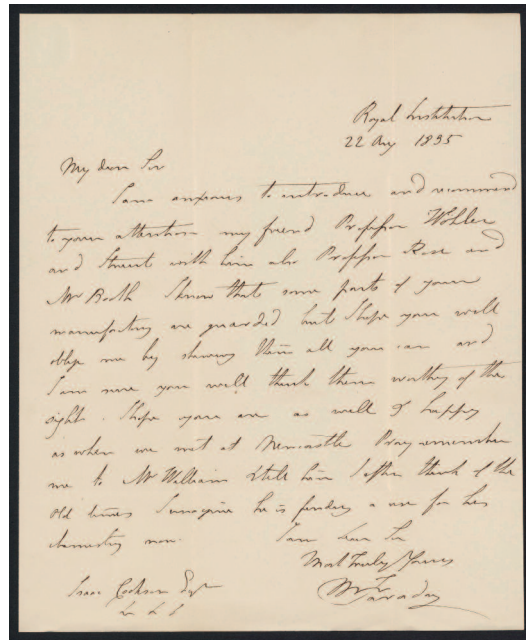 Royal Institution
22 Aug 1835
My dear Sir
I am anxious to introduce and recommend
to your attention my friend Professor Wohler
and with him also Professor Rose and
Mr Booth I know that some parts of your
manufactory are guarded but I hope you will
oblige me by shewing them all you can and
I am sure you will think them worthy of the
sight. I hope you are as well & happy
as when we met at Newcastle Pray remember
me to Mr William & tell him I often think of the
old times I imagine he is finding a use for his
chemistry now.
I am Dear Sir
Most Truly Yours
M Faraday
Isaac Cookson Esqr
&c &c &c